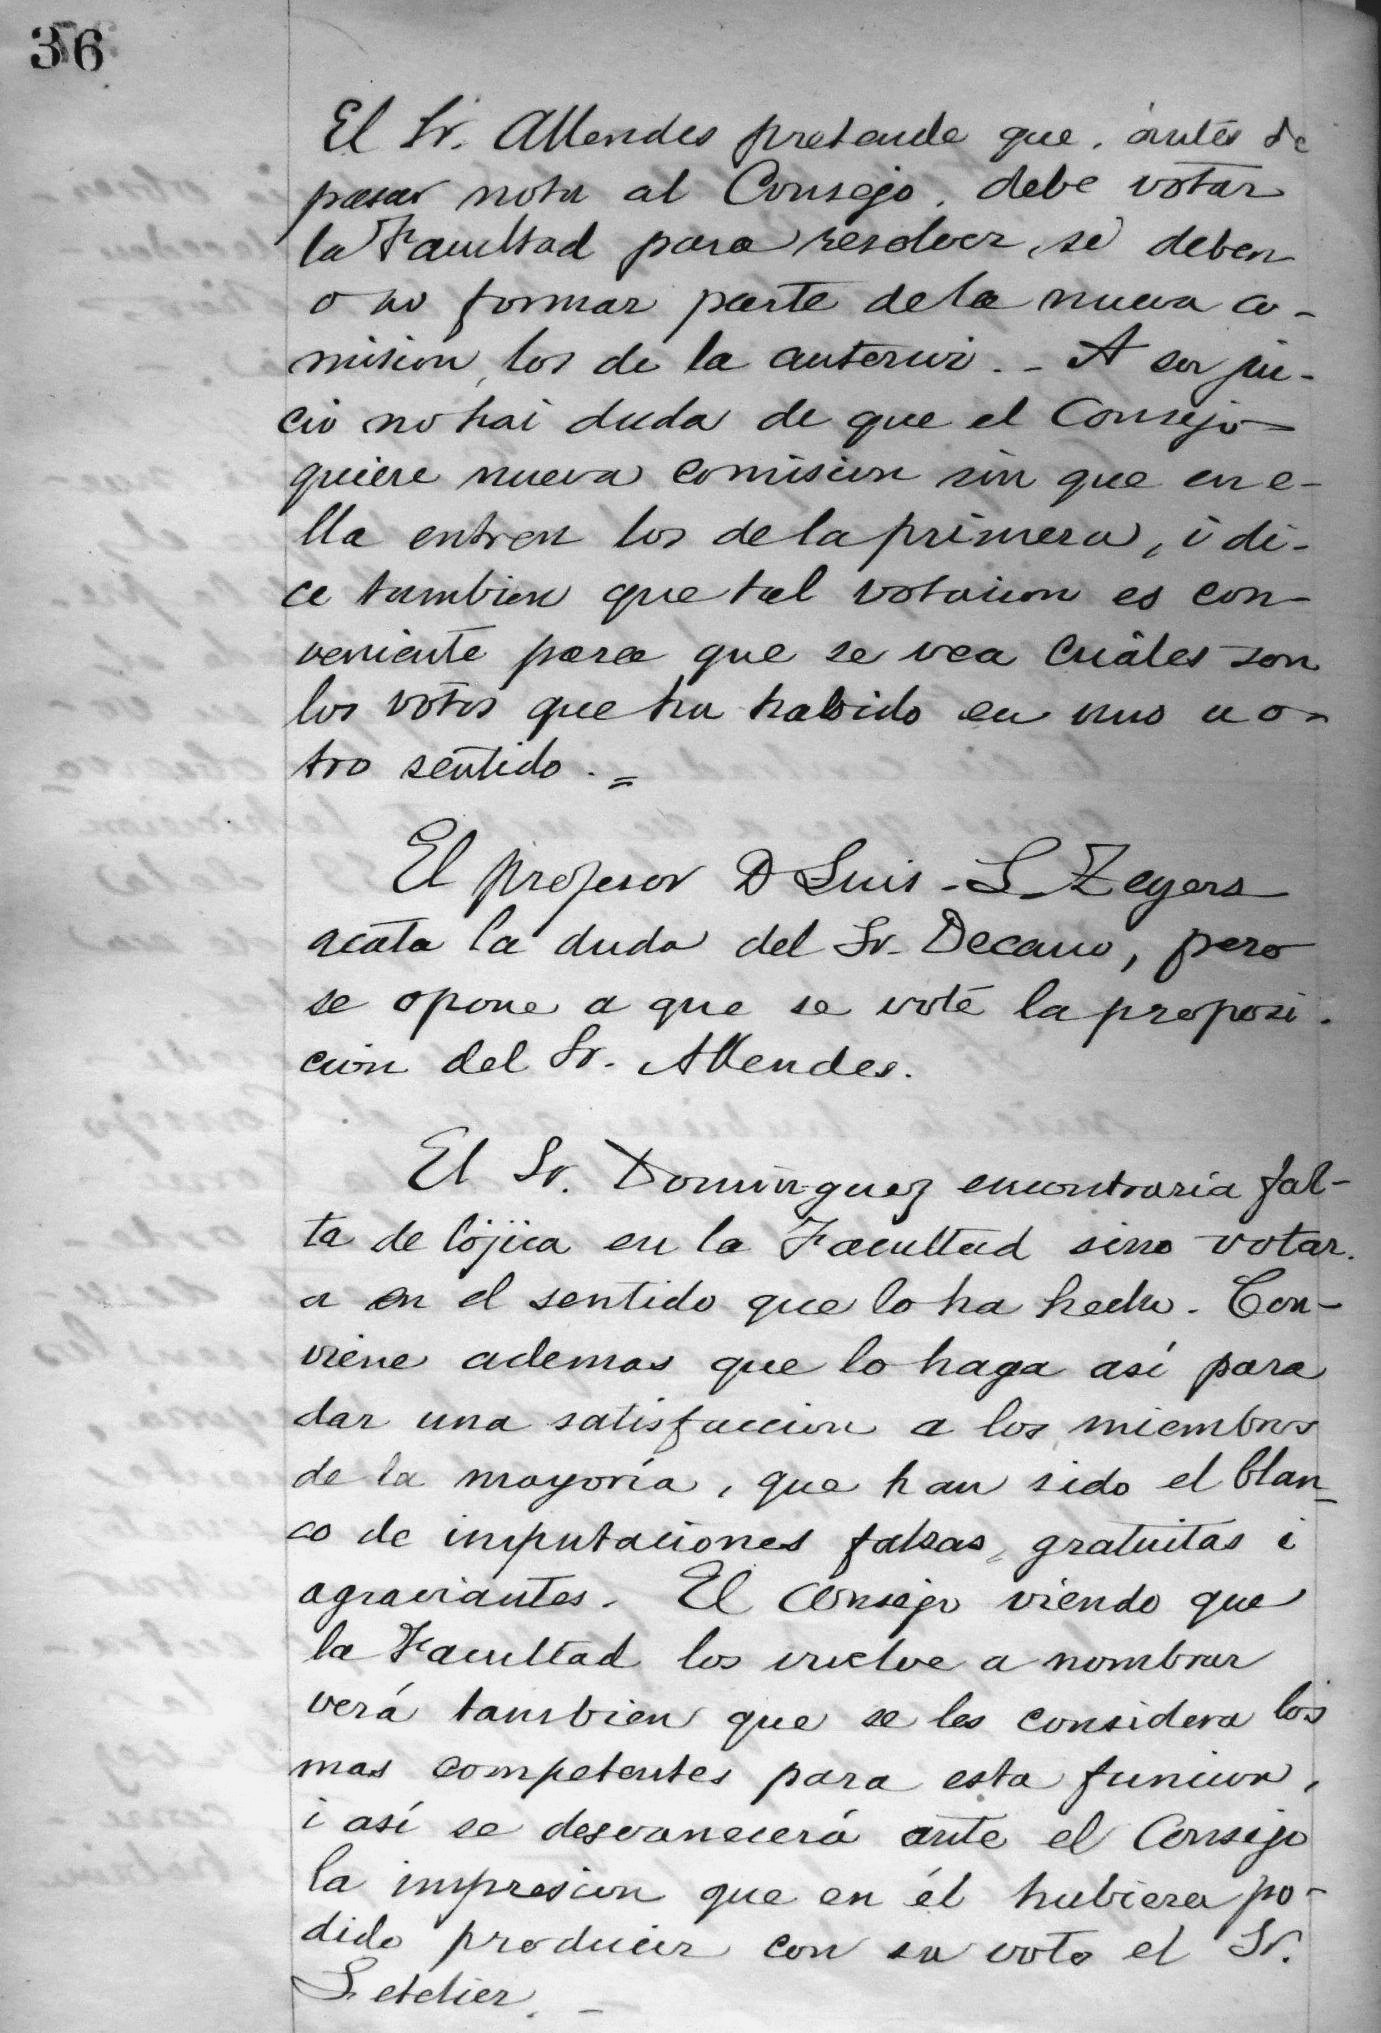 36
El Sr. Allendes pretende que, ántes de
pasar nota al Consejo, debe votar
la Facultad para resolver, si deben
o no formar parte de la nueva co-
mision, los de la anterior. - A su jui-
cio no hai duda de que el Consejo
quiere nueva comision sin que en e-
lla entren los de la primera, i di-
ce tambien que tal votacion es con-
veniente para que se vea cuáles son
los votos que ha habido en uno u o-
tro sentido. =
El profesor D Luis - L. Zegers
acata la duda del Sr. Decano, pero
se opone a que se vote la proposi-
cion del Sr. Allendes.
El Sr. Dominguez encontraria fal-
ta de lójica en la Facultad sino votar.
a en el sentido que lo ha hecho. Con-
viene ademas que lo haga así para
dar una satisfaccion a los miembros
de la mayoría, que han sido el blan-
co de imputaciones falsas, gratuitas i
agraviantes. El Consejo viendo que
la Facultad los vuelve a nombrar
verá tambien que se les considera los
mas competentes para esta funcion,
i así se desvanecerá ante el Consejo
la impresion que en él hubiera po-
dido producir con su voto el Sr.
Letelier. -